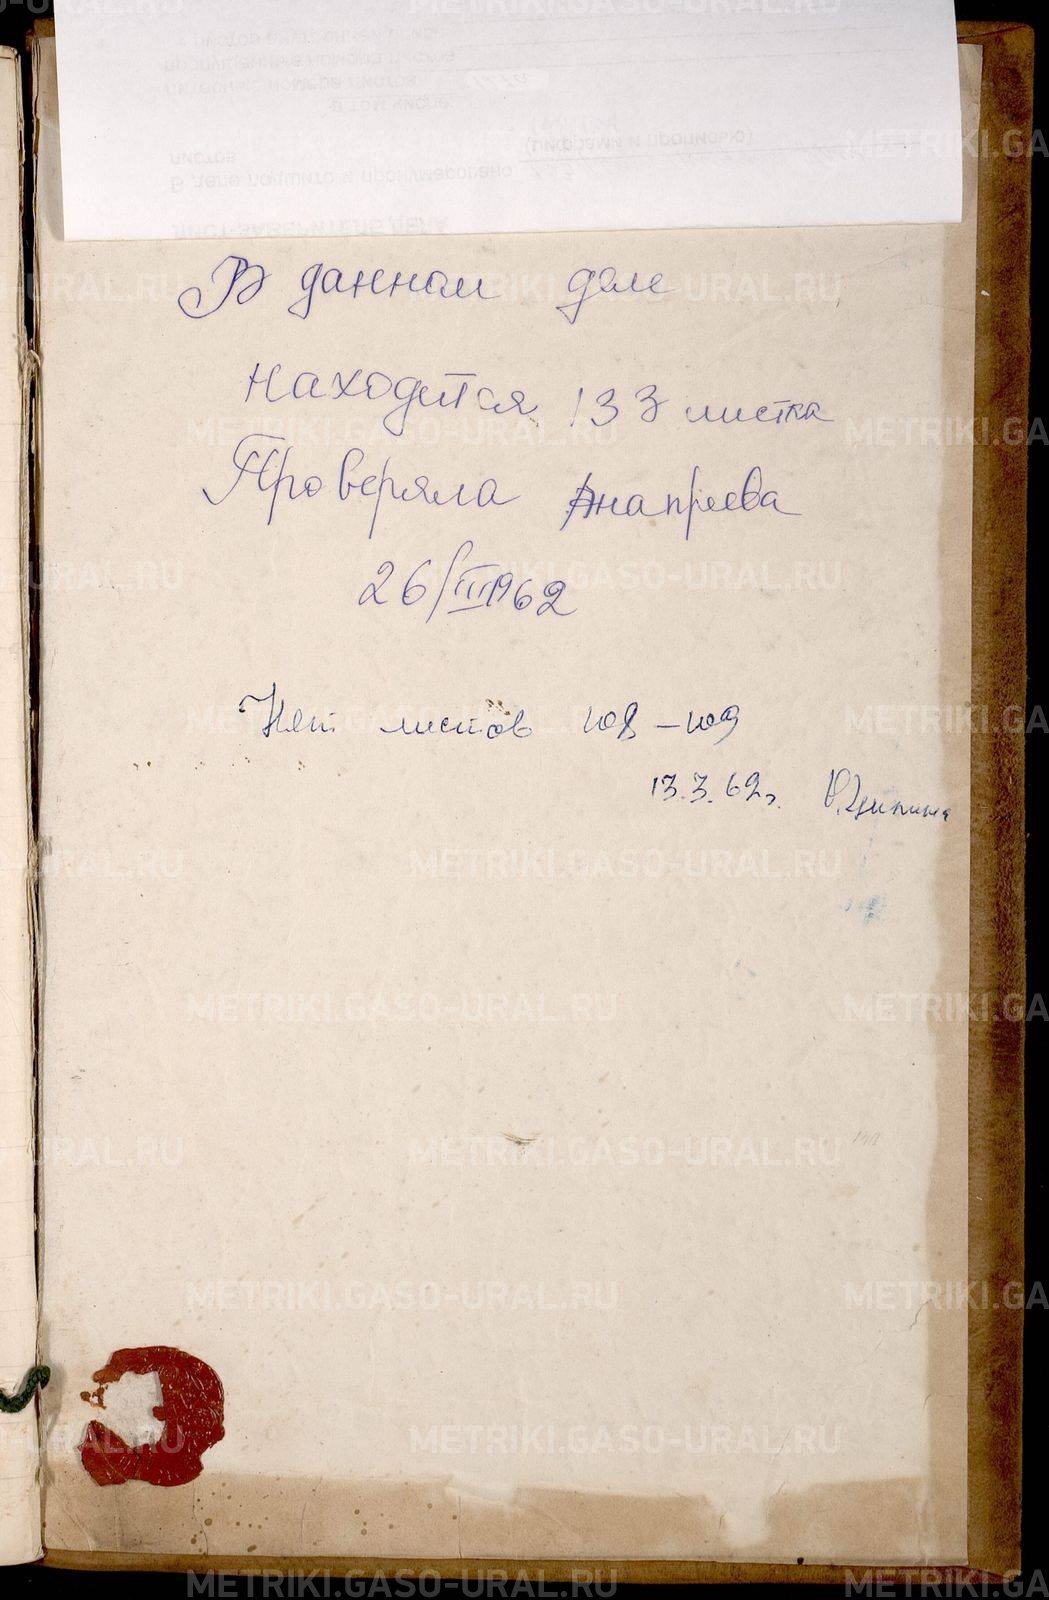 В данном деле
находится 133 листка
Проверяла Анапреева
26/III 1962
Нет листов 108 – 109
13.3.62г.
METRIKI.GASO-URAL.RU